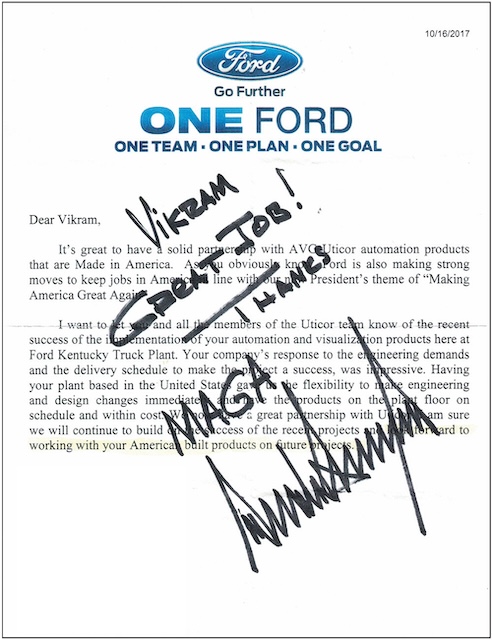 10/16/2017
Ford
Go Further
ONE FORD
ONE TEAM · ONE PLAN · ONE GOAL
Dear Vikram,
VIKRAM
GREAT JOB!
THANKS
It's great to have a solid partnership with AVG Uticor automation products
that are Made in America. As you obviously know Ford is also making strong
moves to keep jobs in America in line with our new President's theme of "Making
America Great Again
I want to let you and all the members of the Uticor team know of the recent
success of the implementation of your automation and visualization products here at
Ford Kentucky Truck Plant. Your company's response to the engineering demands
and the delivery schedule to make the project a success, was impressive. Having
your plant based in the United States gave the flexibility to make engineering
and design changes immediately and the products on the plant floor on
schedule and within cost. We a great partnership with am sure
we will continue to build on the success of the recent projects and look forward to
working with your American built products on future projects.
MAGA